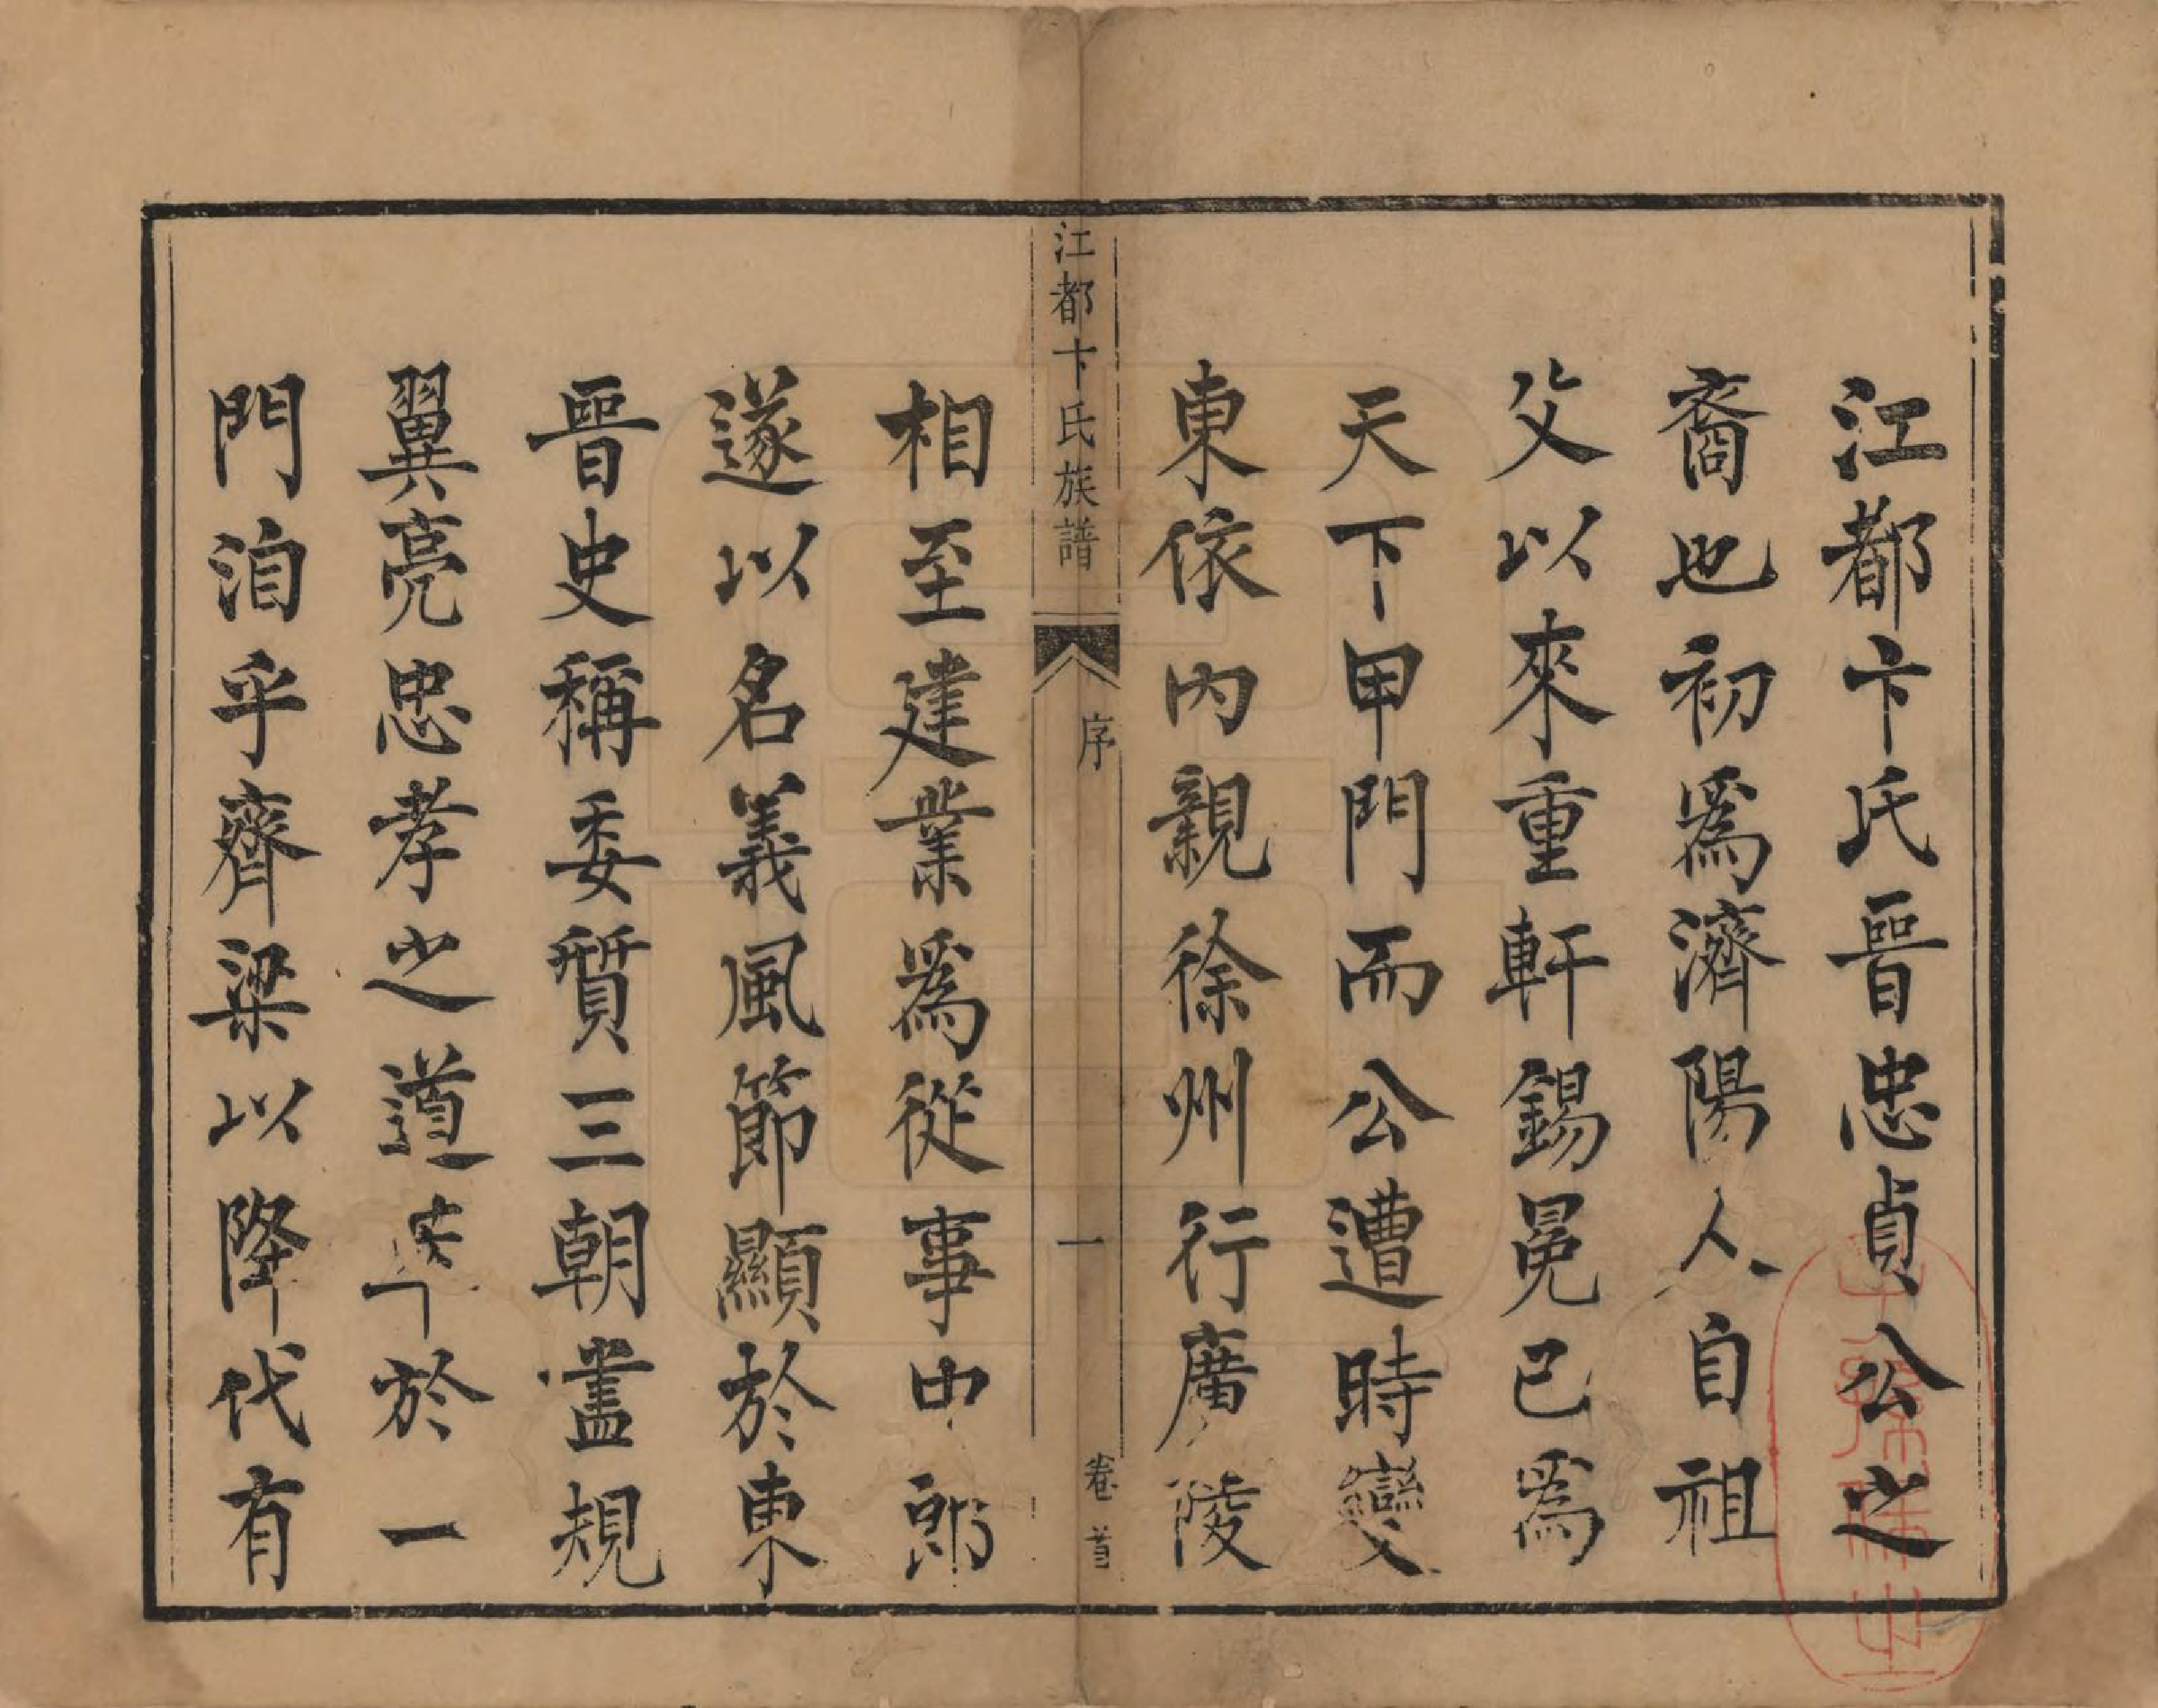 江都卞氏晉忠貞公之
裔也初爲濟陽人自祖
父以來重軒錫冕已爲
天下甲門而公遭時變
東依內親徐州行廣陵
江都卞氏族譜
序
一
卷首
相至建業爲從事中郎
遂以名義風節顯於東
晉史稱委質三朝盡規
翼亮忠孝之道 於一
門洎乎齊梁以降代有